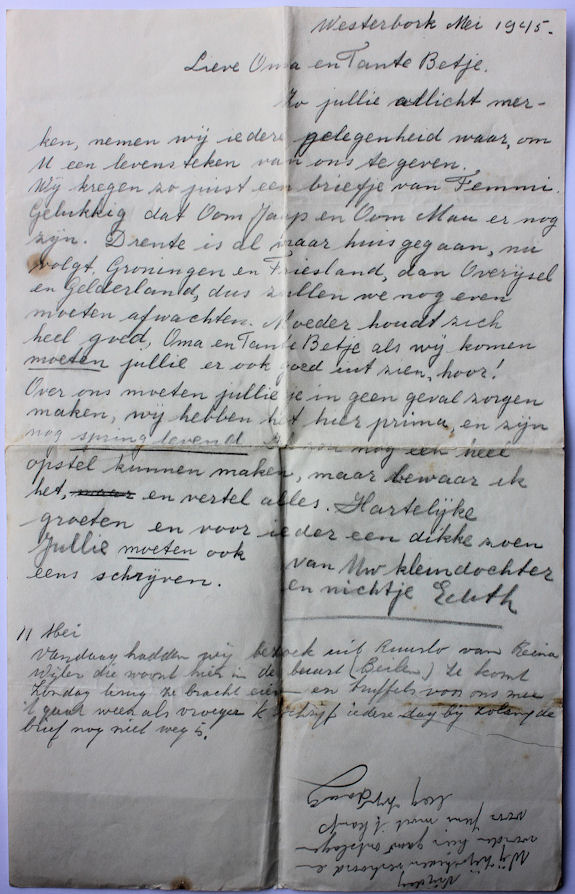 Westerbork Mei 1945.
Lieve Oma en Tante Betje.
Zo jullie allicht mer-
ken, nemen wij iedere gelegenheid waar, om
U een levensteken van ons te geven.
Wij kregen zo juist een briefje van Femmi.
Gelukkig dat Oom Jaap en Oom Mau er nog
zijn. Drente is al naar huis gegaan, nu
volgt, Groningen en Friesland, dan Overijsel
en Gelderland, dus zullen we nog even
moeten afwachten. Moeder houdt zich
heel goed, Oma en Tante Betje als wij komen
moeten jullie er ook goed uit zien, hoor!
Over ons moeten jullie je in geen geval zorgen
maken, wij hebben het hier prima, en zijn
nog springlevend. Ik zou nog een heel
opstel kunnen maken, maar bewaar ik
het, maar en vertel alles. Hartelijke
groeten en voor ieder een dikke zoen
Jullie moeten ook
eens schrijven.
van Uw kleindochter
en nichtje Edith
11 Mei
Vandaag hadden wij bezoek uit Ruurlo van Reina
Wijler die woont hier in de buurt (Beilen) Ze komt
Zondag terug ze bracht eieren en truffels voor ons mee
't gaat weer als vroeger Ik schrijf iedere dag bij zolang de
brief nog niet weg is.
Wij zijn
verhoord en
worden hier gauw ontslagen